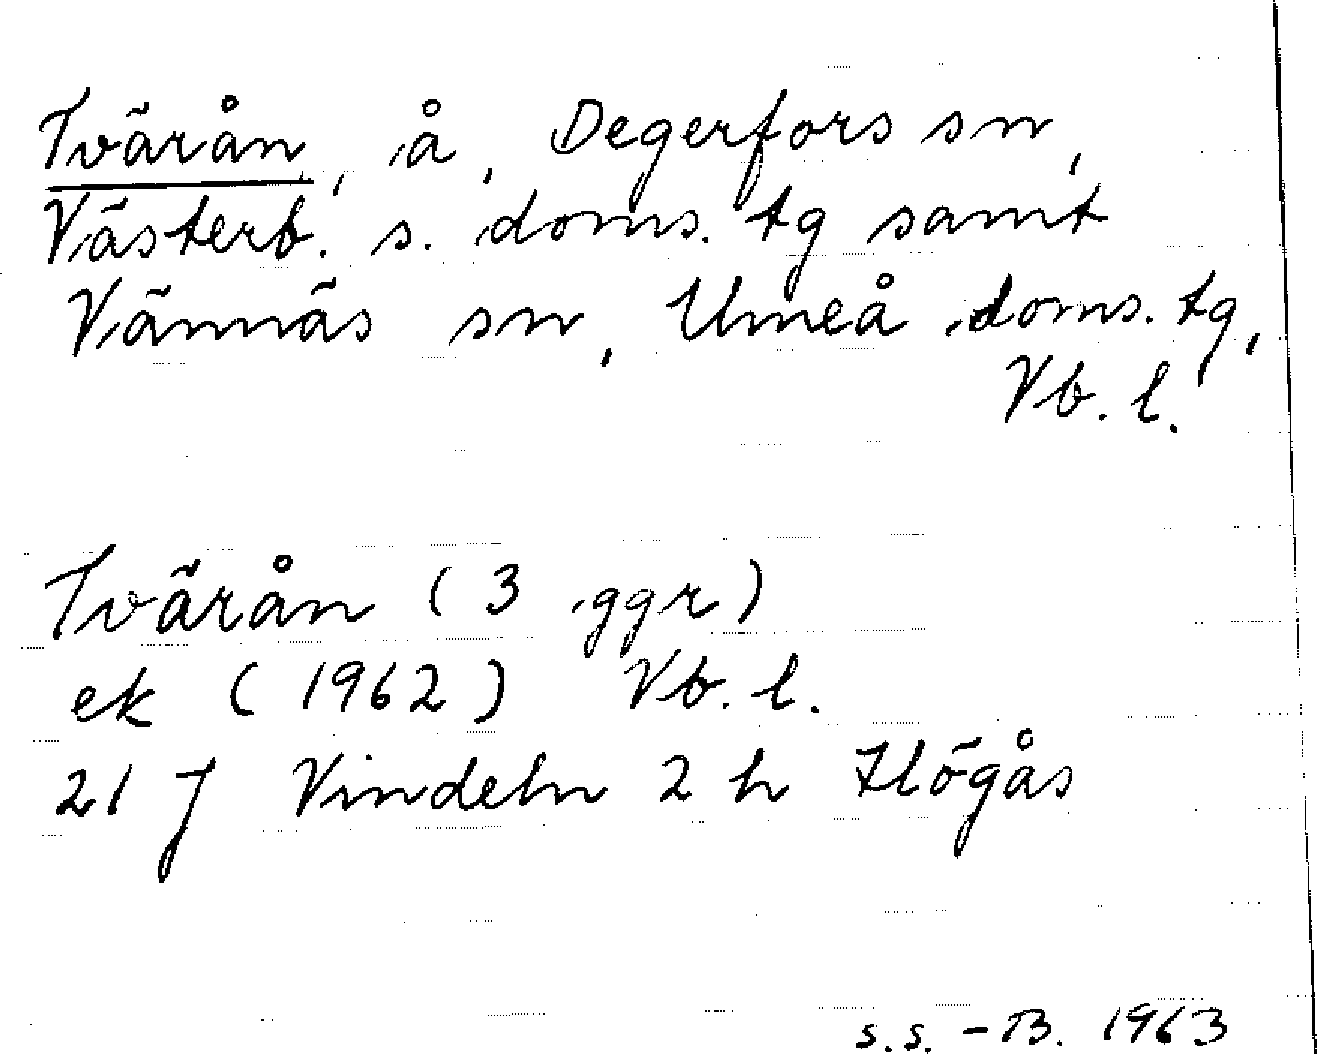 Tvärån, å, Degerfors sn,
Västerb. s. doms. tg samt
Vännäs sn, Umeå doms. tg,
Vb. l.
Tvärån (3 ggr)
ek (1962) Vb. l.
21 J Vindeln 2 h Högås
s.s. - B. 1963